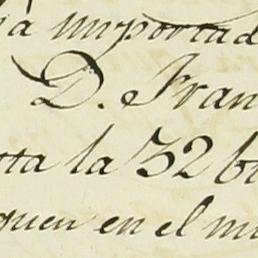 a importad
D. Fran
ta la 32 b
guen en el m